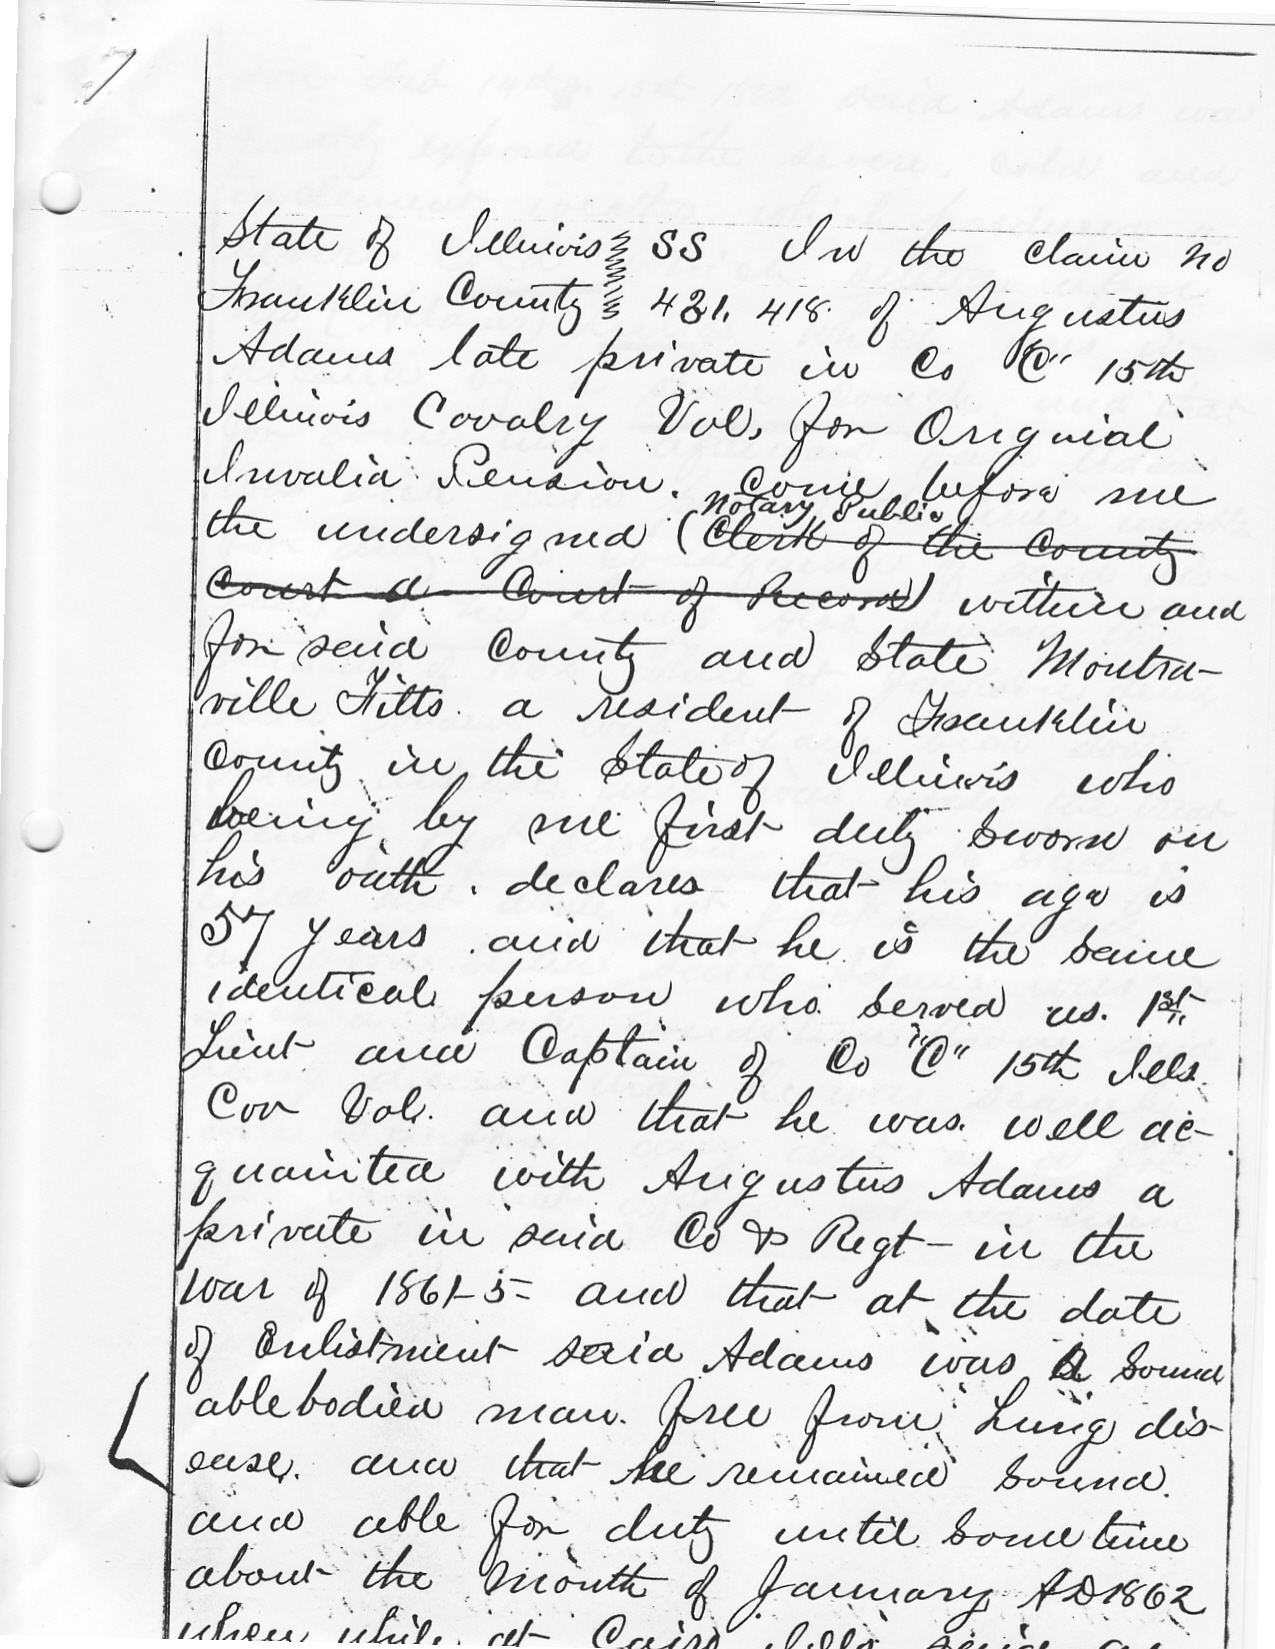 State of Illinois SS In the claim No
Franklin County 421,418 of Augustus
Adams late private in Co "C" 15th
Illinois Covalry Vol, for Original
Invalid Pension. Come before me
Notary Public
the undersigned (Clerk of the County
Court a Court of Record) within and
for said County and State Montra-
ville Fitts a resident of Franklin
County in the State of Illinois who
being by me first duty sworn on
his oath. declares that his age is
57 years and that he is the same
identical person who served as 1st
Lieut and Captain of Co "C" 15th Ills
Cov Vol. and that he was well ac-
quainted with Augustus Adams a
private in said Co & Regt - in the
war of 1861-5 - and that at the date
of Enlistment said Adams was a sound
ablebodied man. free from Lung dis-
ease. and that he remained sound.
and able for duty until some time
about the Month of January AD 1862
when while at Cairo Ills